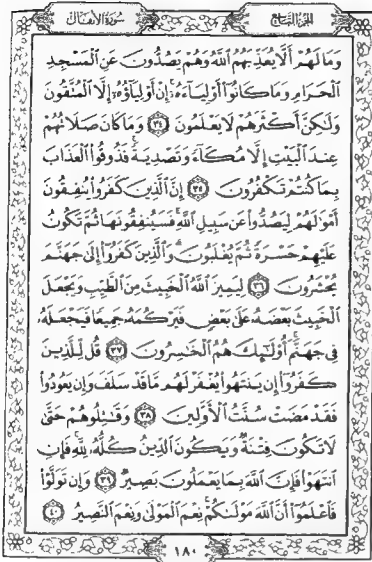 الجزء التاسع
سورة الأنفال
وَمَا لَهُمْ أَلَّا يُعَذِّبَهُمُ ٱللَّهُ وَهُمْ يَصُدُّونَ عَنِ ٱلْمَسْجِدِ
ٱلْحَرَامِ وَمَا كَانُوٓا۟ أَوْلِيَآءَهُۥٓ إِنْ أَوْلِيَآؤُهُۥٓ إِلَّا ٱلْمُتَّقُونَ
وَلَـٰكِنَّ أَكْثَرَهُمْ لَا يَعْلَمُونَ ٣٤ وَمَا كَانَ صَلَاتُهُمْ
عِندَ ٱلْبَيْتِ إِلَّا مُكَآءً وَتَصْدِيَةً فَذُوقُوا۟ ٱلْعَذَابَ
بِمَا كُنتُمْ تَكْفُرُونَ ٣٥ إِنَّ ٱلَّذِينَ كَفَرُوا۟ يُنفِقُونَ
أَمْوَٰلَهُمْ لِيَصُدُّوا۟ عَن سَبِيلِ ٱللَّهِ فَسَيُنفِقُونَهَا ثُمَّ تَكُونُ
عَلَيْهِمْ حَسْرَةً ثُمَّ يُغْلَبُونَ وَٱلَّذِينَ كَفَرُوٓا۟ إِلَىٰ جَهَنَّمَ
يُحْشَرُونَ ٣٦ لِيَمِيزَ ٱللَّهُ ٱلْخَبِيثَ مِنَ ٱلطَّيِّبِ وَيَجْعَلَ
ٱلْخَبِيثَ بَعْضَهُۥ عَلَىٰ بَعْضٍ فَيَرْكُمَهُۥ جَمِيعًا فَيَجْعَلَهُۥ
فِى جَهَنَّمَ أُو۟لَـٰٓئِكَ هُمُ ٱلْخَـٰسِرُونَ ٣٧ قُل لِّلَّذِينَ
كَفَرُوٓا۟ إِن يَنتَهُوا۟ يُغْفَرْ لَهُم مَّا قَدْ سَلَفَ وَإِن يَعُودُوا۟
فَقَدْ مَضَتْ سُنَّتُ ٱلْأَوَّلِينَ ٣٨ وَقَـٰتِلُوهُمْ حَتَّىٰ
لَا تَكُونَ فِتْنَةٌ وَيَكُونَ ٱلدِّينُ كُلُّهُۥ لِلَّهِ فَإِنِ
ٱنتَهَوْا۟ فَإِنَّ ٱللَّهَ بِمَا يَعْمَلُونَ بَصِيرٌ ٣٩ وَإِن تَوَلَّوْا۟
فَٱعْلَمُوٓا۟ أَنَّ ٱللَّهَ مَوْلَىٰكُمْ نِعْمَ ٱلْمَوْلَىٰ وَنِعْمَ ٱلنَّصِيرُ ٤٠
١٨٠